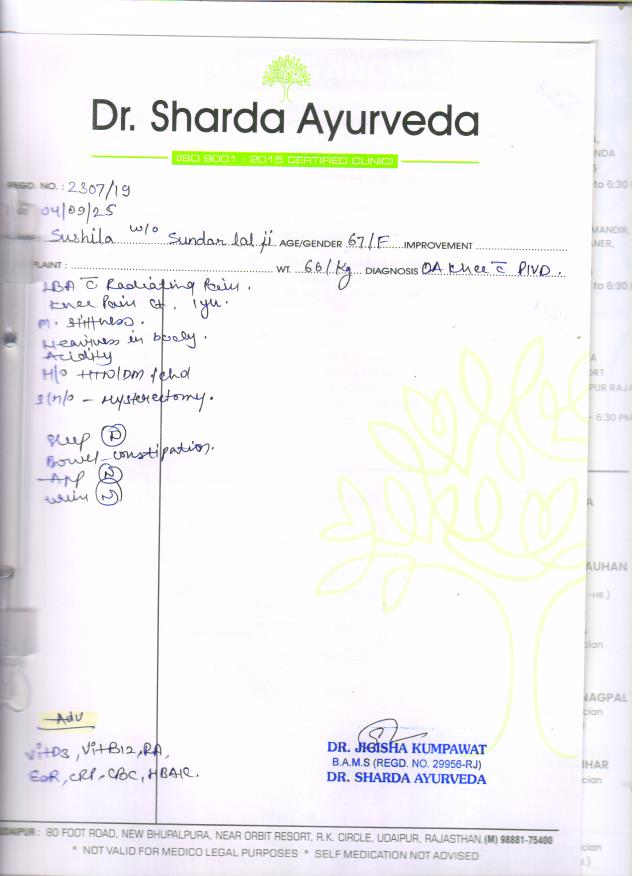 Dr. Sharda Ayurveda
(ISO 9001 : 2015 CERTIFIED CLINIC)
REGD. NO. : 2307/19
04/09/25
Sushila w/o Sundar lal ji AGE/GENDER 67/F IMPROVEMENT
PLAINT : WT. 66/Kg DIAGNOSIS OA Knee c̅ PIVD.
LBA c̅ Radiating Pain.
Knee Pain 1yr.
M. stiffness.
Heaviness in body.
Acidity
H/o HTN/DM
S/H/o - Hysterectomy.
Sleep
Bowel - constipation.
App N
Urine N
Adv
Vit D3, Vit B12, RA,
ESR, CRP, CBC, HBA1C.
DR. JIGISHA KUMPAWAT
B.A.M.S (REGD. NO. 29956-RJ)
DR. SHARDA AYURVEDA
UDAIPUR : 80 FOOT ROAD, NEW BHUPALPURA, NEAR ORBIT RESORT, R.K. CIRCLE, UDAIPUR, RAJASTHAN.(M) 98881-75400
* NOT VALID FOR MEDICO LEGAL PURPOSES * SELF MEDICATION NOT ADVISED
NDA
to 6:30
MANDIR,
NER,
to 6:30
ORT
PUR RAJA
- 6:30 PM
AUHAN
-HR.)
cian
NAGPAL
cian
IHAR
cian
cian